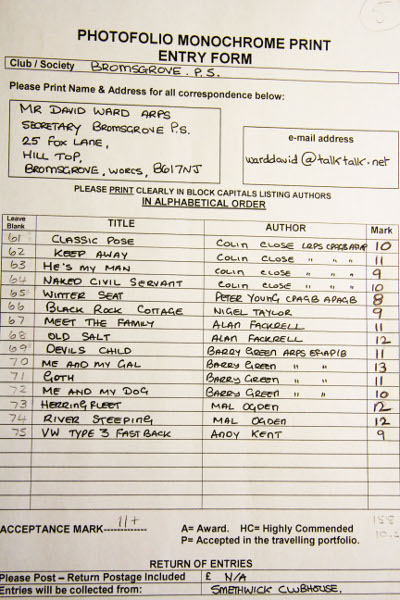 5
PHOTOFOLIO MONOCHROME PRINT
ENTRY FORM
Club / Society BROMSGROVE. P.S.
Please Print Name & Address for all correspondence below:
MR DAVID WARD ARPS
SECRETARY BROMSGROVE P.S.
25 FOX LANE,
HILL TOP,
BROMSGROVE, WORCS, B617NJ
e-mail address
warddavid@talktalk.net
PLEASE PRINT CLEARLY IN BLOCK CAPITALS LISTING AUTHORS
IN ALPHABETICAL ORDER
Leave Blank TITLE AUTHOR Mark
61 CLASSIC POSE COLIN CLOSE LRPS CPAGB 10
62 KEEP AWAY COLIN CLOSE " " " 11
63 HE'S MY MAN COLIN CLOSE " " " 9
64 NAKED CIVIL SERVANT COLIN CLOSE " " " 10
65 WINTER SEAT PETER YOUNG CPAGB APAGB 8
66 BLACK ROCK COTTAGE NIGEL TAYLOR 9
67 MEET THE FAMILY ALAN FACKRELL 11
68 OLD SALT ALAN FACKRELL 12
69 DEVILS CHILD BARRY GREEN ARPS EFIAP/B 11
70 ME AND MY GAL BARRY GREEN " " 13
71 GOTH BARRY GREEN " " 11
72 ME AND MY DOG BARRY GREEN " " 10
73 HERRINGFLEET MAL OGDEN 12
74 RIVER STEEPING MAL OGDEN 12
75 VW TYPE 3 FASTBACK ANDY KENT 9
ACCEPTANCE MARK 11+ A= Award. HC= Highly Commended
P= Accepted in the travelling portfolio.
158
RETURN OF ENTRIES
Please Post – Return Postage Included £ N/A
Entries will be collected from: SMETHWICK CLUBHOUSE.